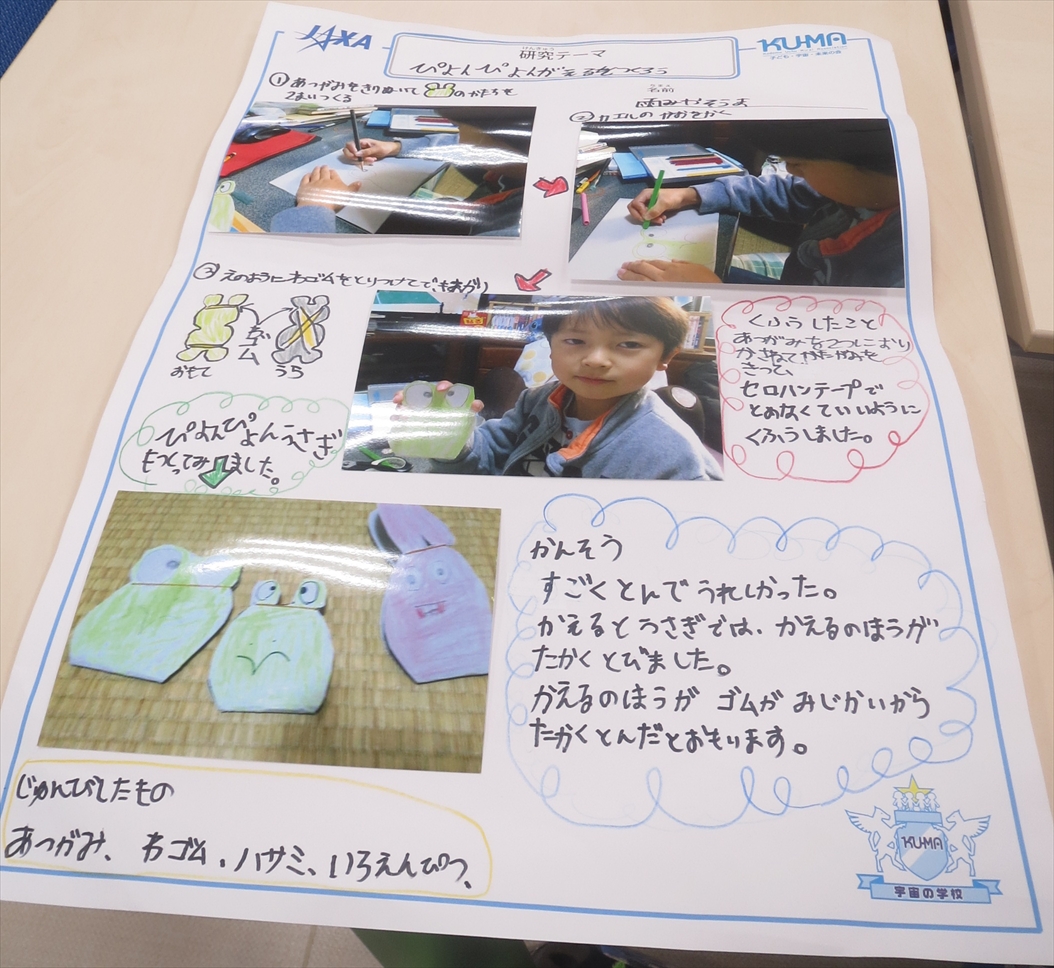 JAXA
けんきゅう
研究テーマ
ぴよんぴよんがえるをつくろう
KU-MA
子ども・宇宙・未来の会
なまえ
名前
①あつがみをきりぬいて のかたちを
2まいつくる
②カエルの かおをかく
③えのようにわゴムをとりつけてできあがり
わゴム
おもて
うら
くふうしたこと
あつがみを2つにおり
かさねてかたがみを
きって、
セロハンテープで
とめなくていいように
くふうしました。
ぴよんぴよんうさぎ
もつくってみました。
かんそう
すごくとんでうれしかった。
かえるとうさぎでは、かえるのほうが
たかくとびました。
かえるのほうが ゴムが みじかいから
たかくとんだとおもいます。
じゅんびしたもの
あつがみ、わゴム、ハサミ、いろえんぴつ、
KU-MA
宇宙の学校